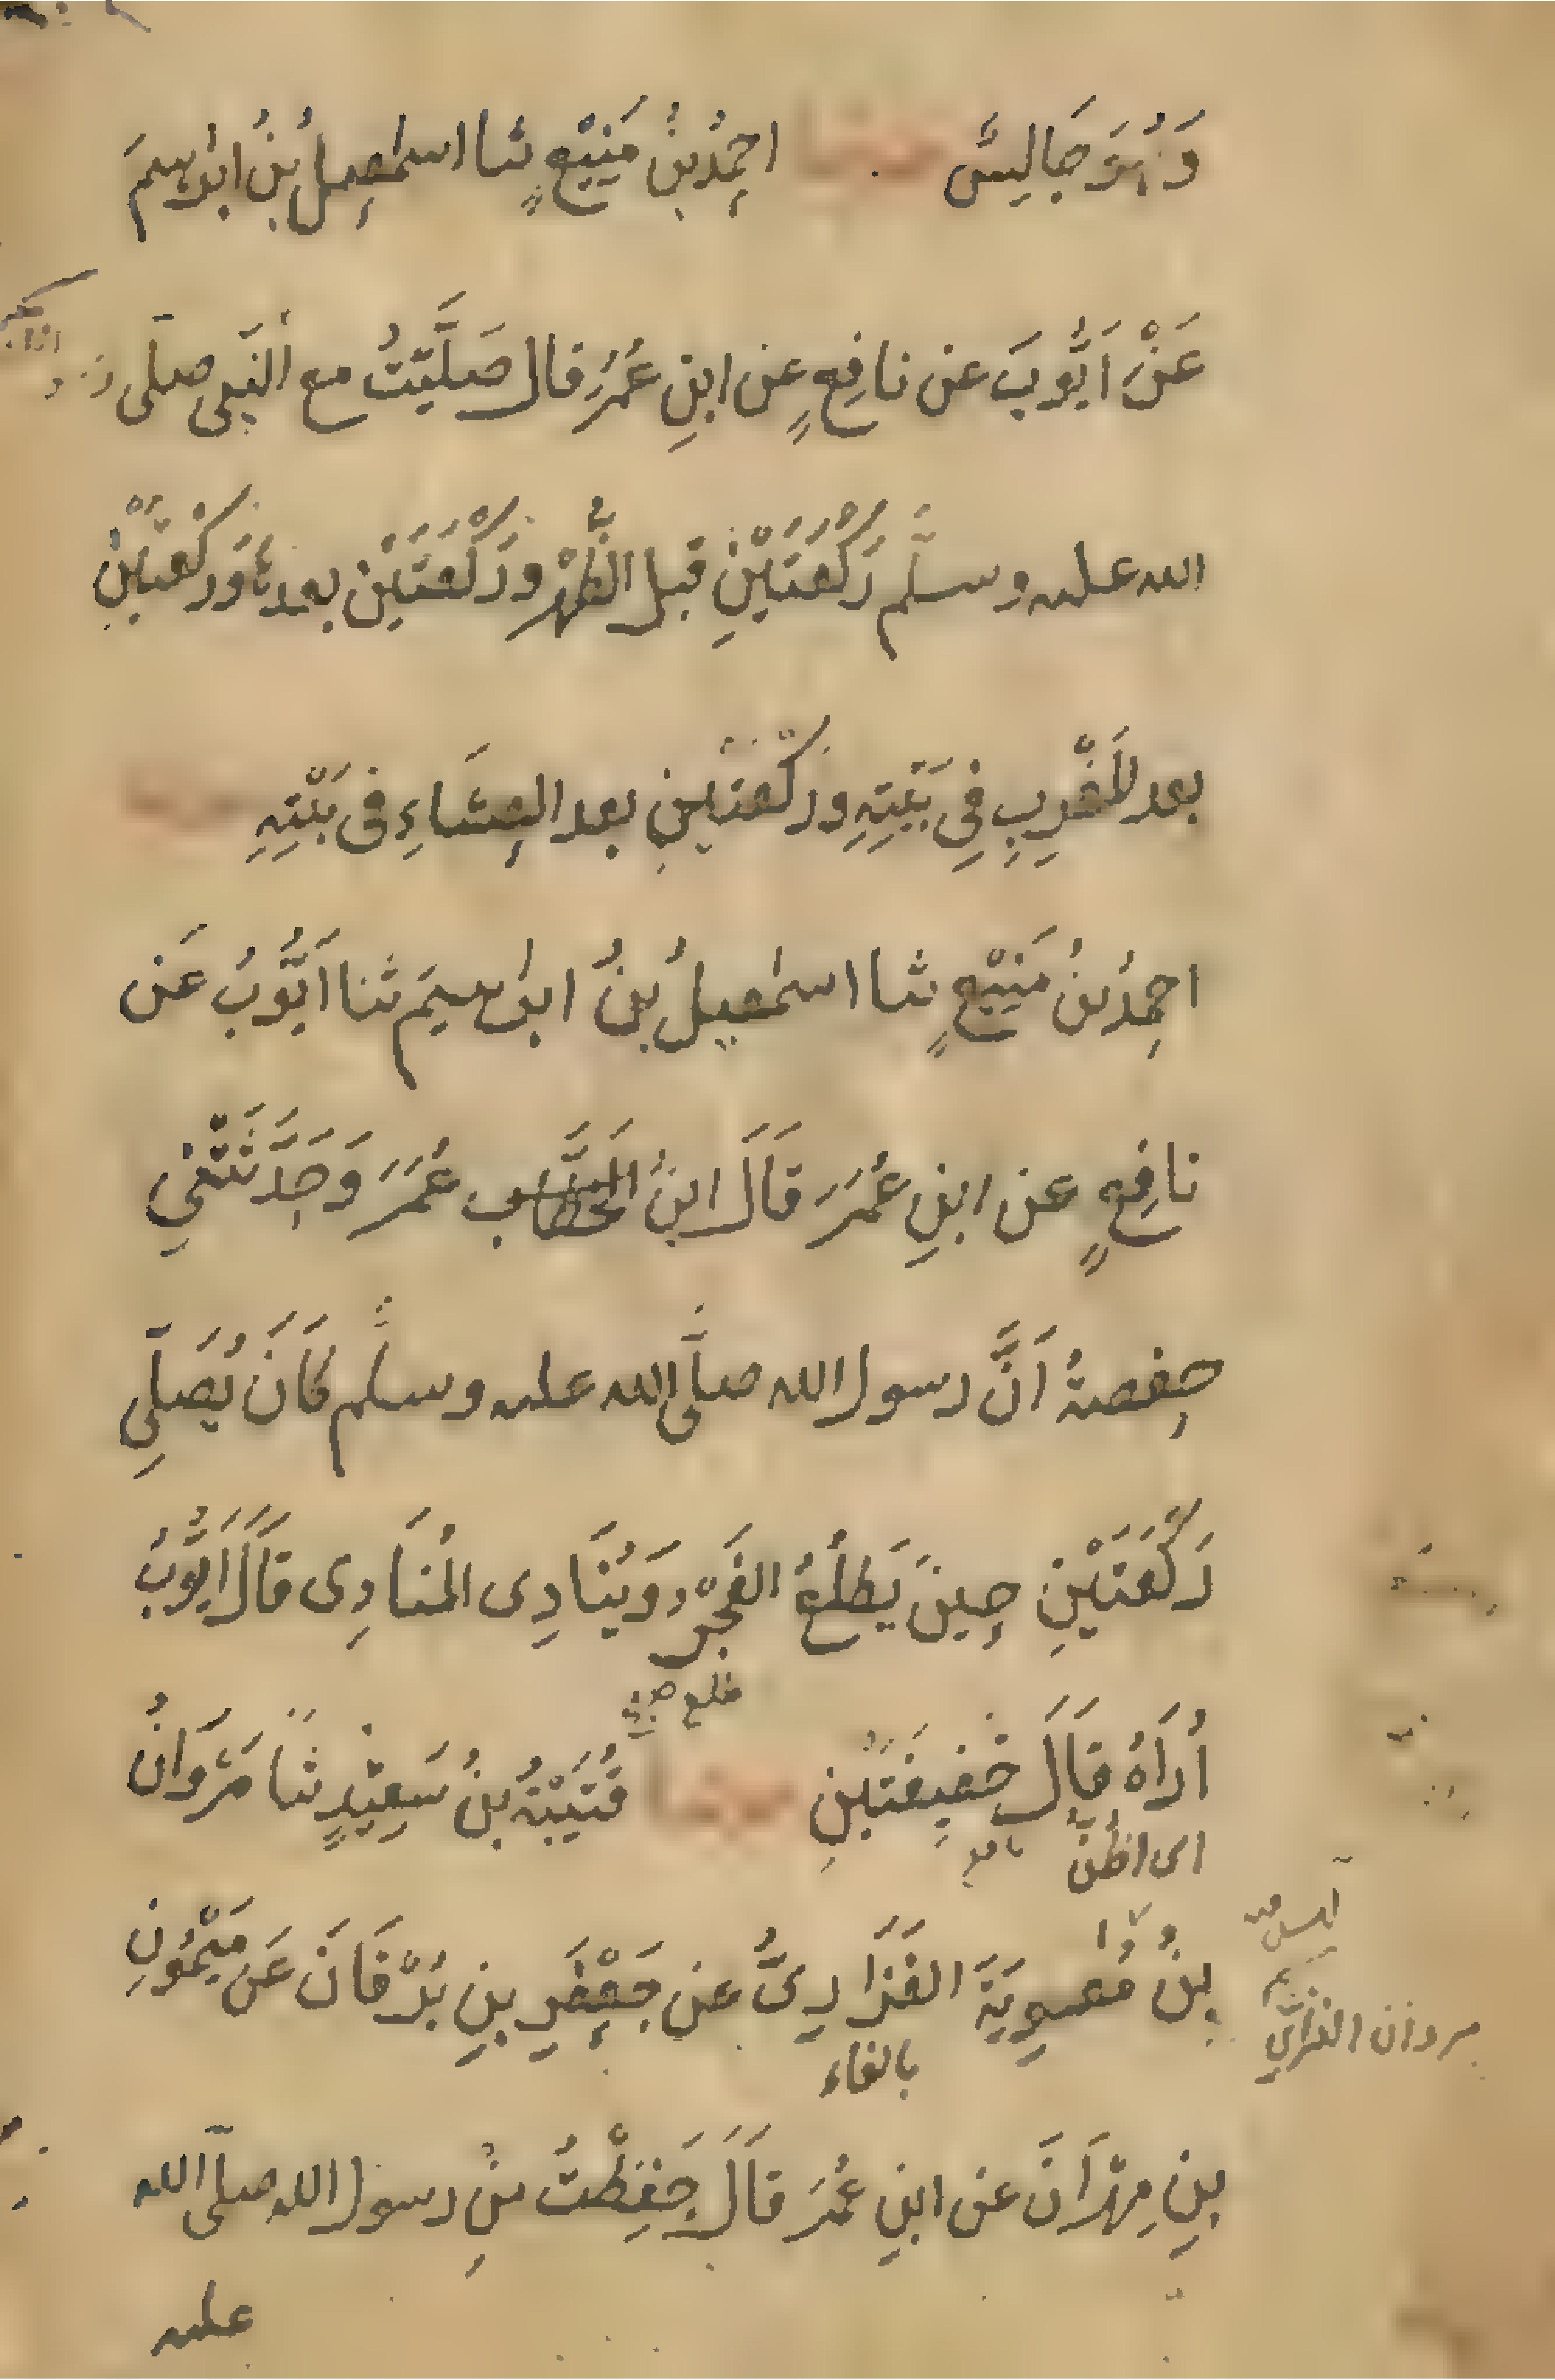 وَهُوَ جَالِسٌ حدثنا احمدُ بنُ مَنِيْعٍ ثنا اسمٰعيلُ بنُ ابراهيمَ
عَنْ اَيُّوبَ عن نافِعٍ عن ابنِ عُمَرَ قال صَلَّيْتُ مع النبى صلّى
الله عليه وسلَّم رَكْعَتَيْنِ قبل الظُّهْرِ ورَكْعَتَيْنِ بعدهَا وَرَكْعَتَيْنِ
بعد المَغْرِبِ فِى بَيْتِهِ وركْعتَينِ بعد العِشَاءِ فى بَيْتِهِ
احمدُ بنُ مَنِيْعٍ ثنا اسمٰعيلُ بنُ ابراهيمَ ثنا اَيُّوبُ عَن
نافِعٍ عن ابنِ عُمَرَ قَالَ ابنُ الخَطَّاب عُمَرَ وَحَدَّثَتْنِي
حفصةُ اَنَّ رسول الله صلَّى الله عليه وسلَّم كَانَ يُصَلِّى
رَكْعَتَيْنِ حِينَ يَطْلُعُ الفَجْرُ وَيُنَادِى المُنَادِى قَالَ اَيُّوبُ
أُرَاهُ قَالَ خَفِيفَتَيْنِ حدثنا قُتَيْبَةُ بنُ سَعِيْدٍ ثنَا مَرْوَانُ
اى اظن
بنُ مُعٰوِيَةَ الفَزَارِىُّ عن جَعْفَرِ بنِ بُرْقَانَ عَن مَيْمُونِ
مروان الفزارى
بالفاء
بنِ مِهْرَانَ عن ابنِ عُمَرَ قَالَ حَفِظْتُ مِنْ رسول الله صلّى الله
عليه